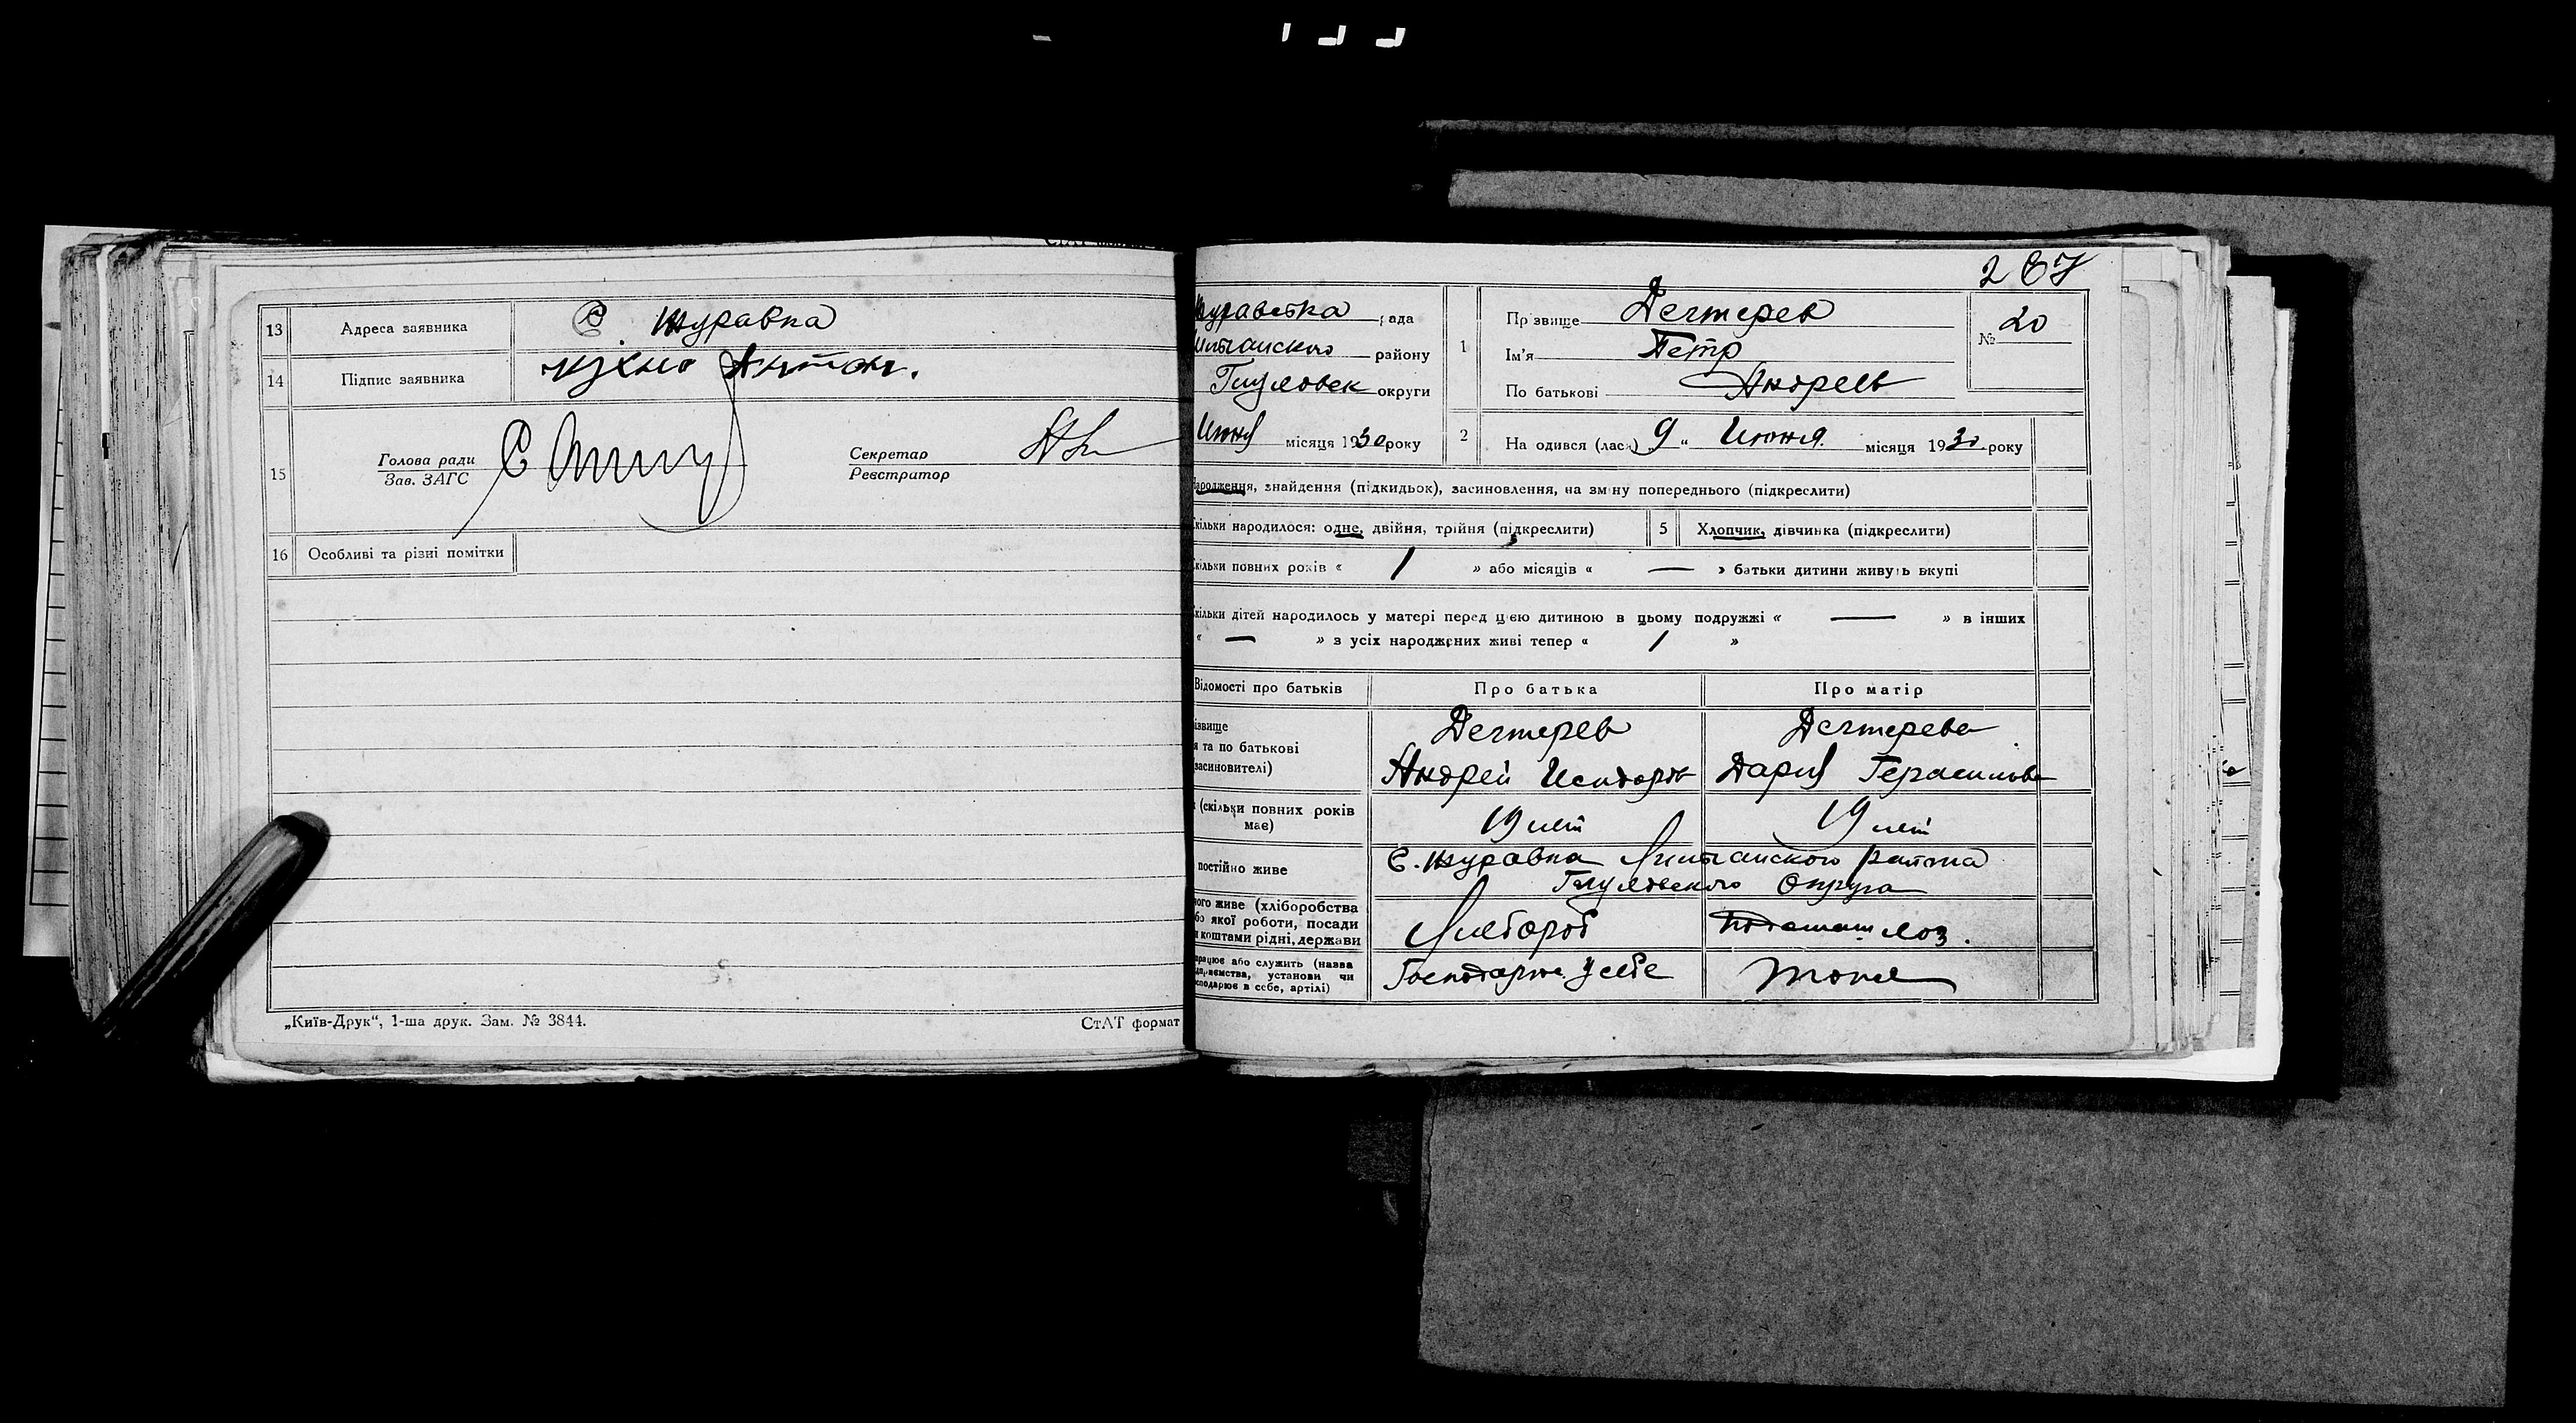 13 Адреса заявника С. Журавка
14 Підпис заявника Кухно Антон.
15 Голова ради
Зав. ЗАГС
Секретар
Реєстратор
16 Особливі та різні помітки
„Київ-Друк“, 1-ша друк. Зам. № 3844.
СтАТ формат
267
рада
району
округи
Июня місяця 1930 року
1 Прізвище Дегтерев
Ім'я Петр
По батькові Андреев
№ 20
2 На одився (лася) „9“ Июня місяця 1930 року
народження, знайдення (підкидьок), засиновлення, на зміну попереднього (підкреслити)
скільки народилося: одне, двійня, трійня (підкреслити)
5 Хлопчик, дівчинка (підкреслити)
скільки повних років « 1 » або місяців « — » батьки дитини живуть вкупі
скільки дітей народилось у матері перед цією дитиною в цьому подружжі « — » в інших
« — » з усіх народжених живі тепер « 1 »
Відомості про батьків
Про батька
Про матір
ізвище
я та по батькові
засиновителі)
Дегтерев
Андрей Исидоров
Дегтерева
Дария Герасимова
(скільки повних років
має)
19 лет
19 лет
постійно живе
С. Журавка района
Округа
ного живе (хліборобства
бо якої роботи, посади
и коштами рідні, держави
Хлебороб
працює або служить (назва
ідприємства, установи чи
сподарює в себе, артілі)
Господарює у себе
тоже